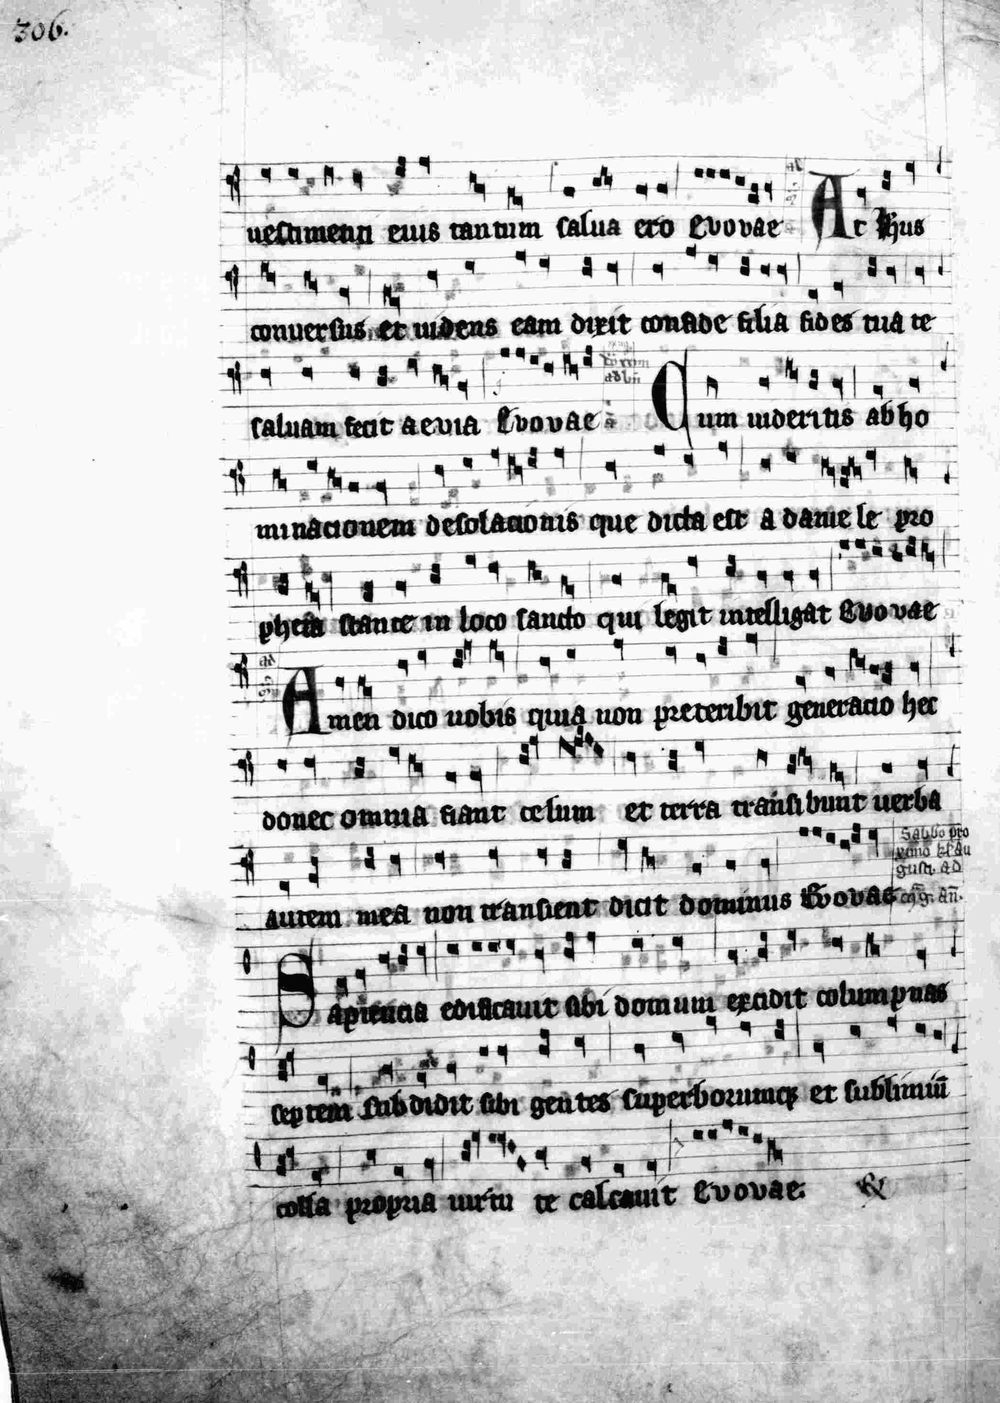 306.
uestimenti eius tantum salua ero Evovae At Ihus
conuersus et uidens eam dixit confide filia fides tua te
saluam fecit aevia Evovae Cum uideritis abho
minacionem desolacionis que dicta est a daniele pro
pheta stante in loco sancto qui legit intelligat Evovae
Amen dico uobis quia non preteribit generacio hec
donec omnia fiant celum et terra transibunt uerba
Sabbo pro
ximo kl' au
gusti. ad
autem mea non transient dicit dominus Evovae mg. an.
Sapiencia edificauit sibi domum excidit columpnas
septem subdidit sibi gentes superborumq; et sublimiū
colla propria uirtute calcauit Evovae. &